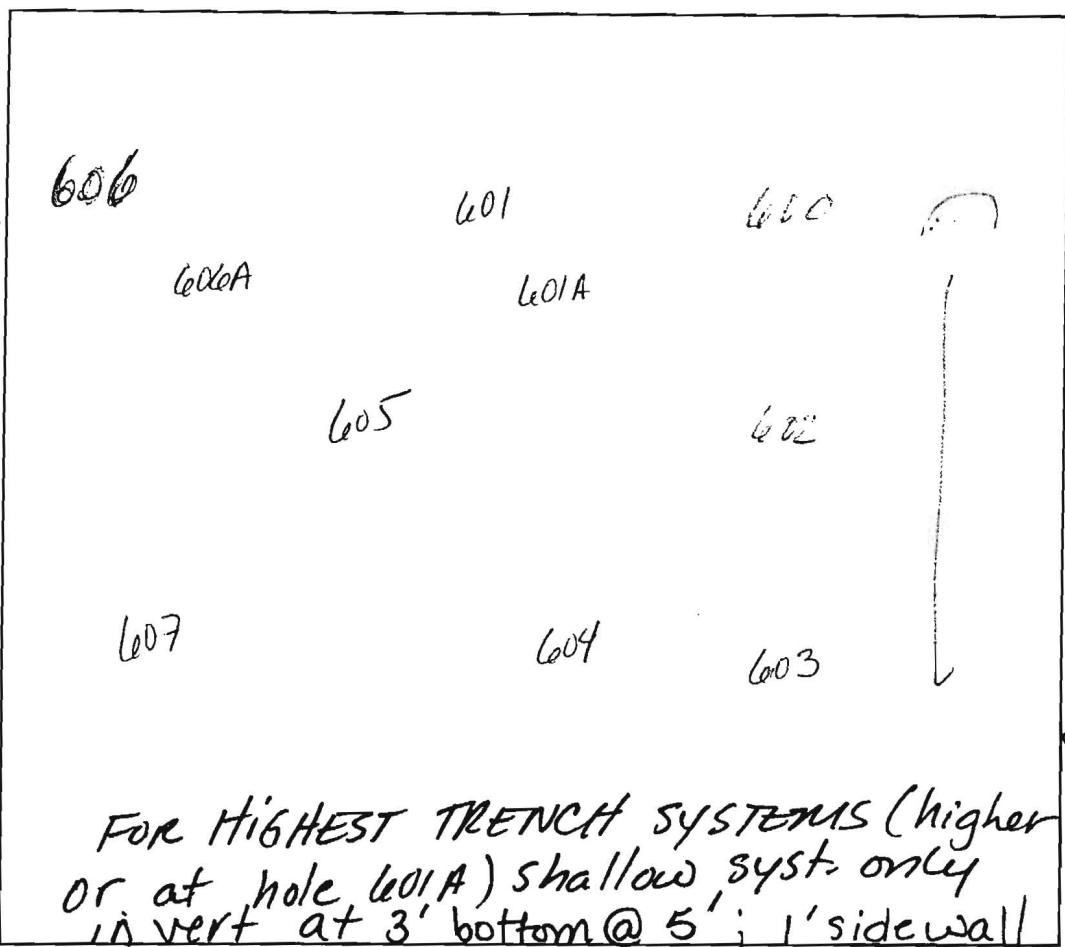 606 601 600
606A 601A
605 602
607 604 603
FOR HIGHEST TRENCH SYSTEMS (higher
or at hole 601A) shallow syst. only
invert at 3' bottom @ 5'; 1' sidewall